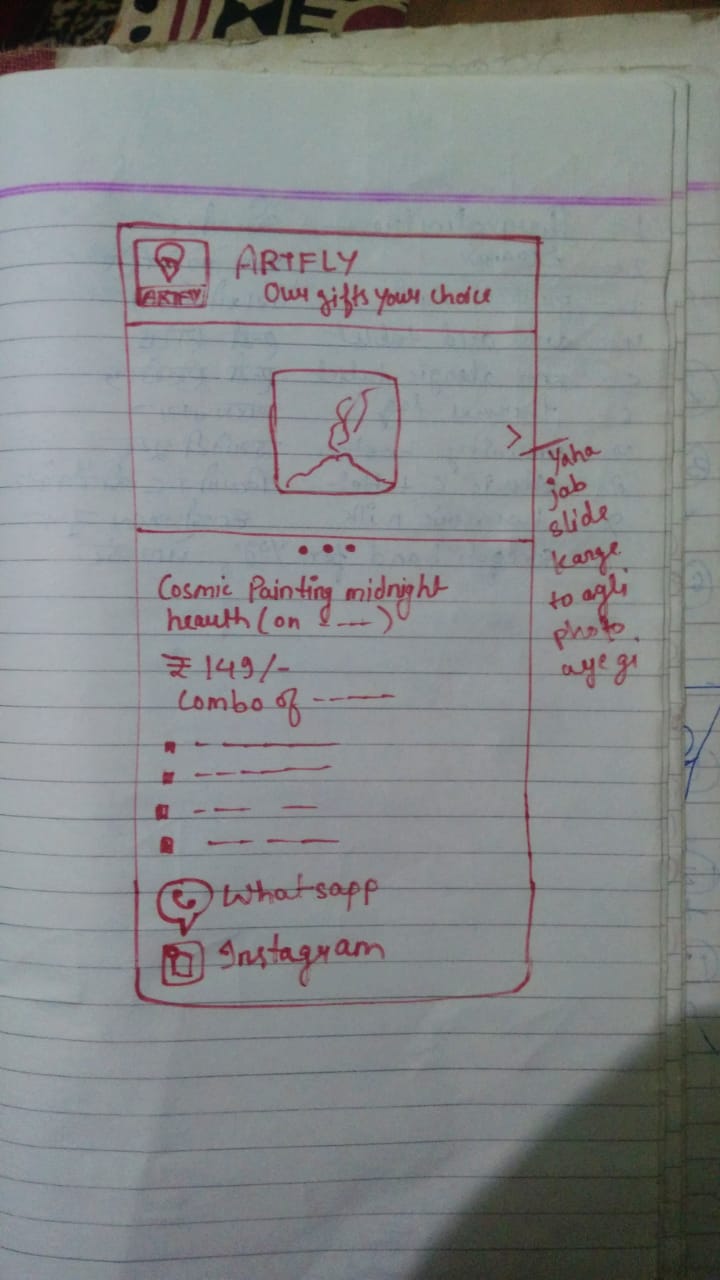 ARTFLY
Our gifts your choice
ARTFLY
>
Yaha
jab
slide
karge
to agli
photo
aye gi
Cosmic Painting midnight
hearth (on ----)
₹ 149/-
Combo of -----
Whatsapp
Instagram